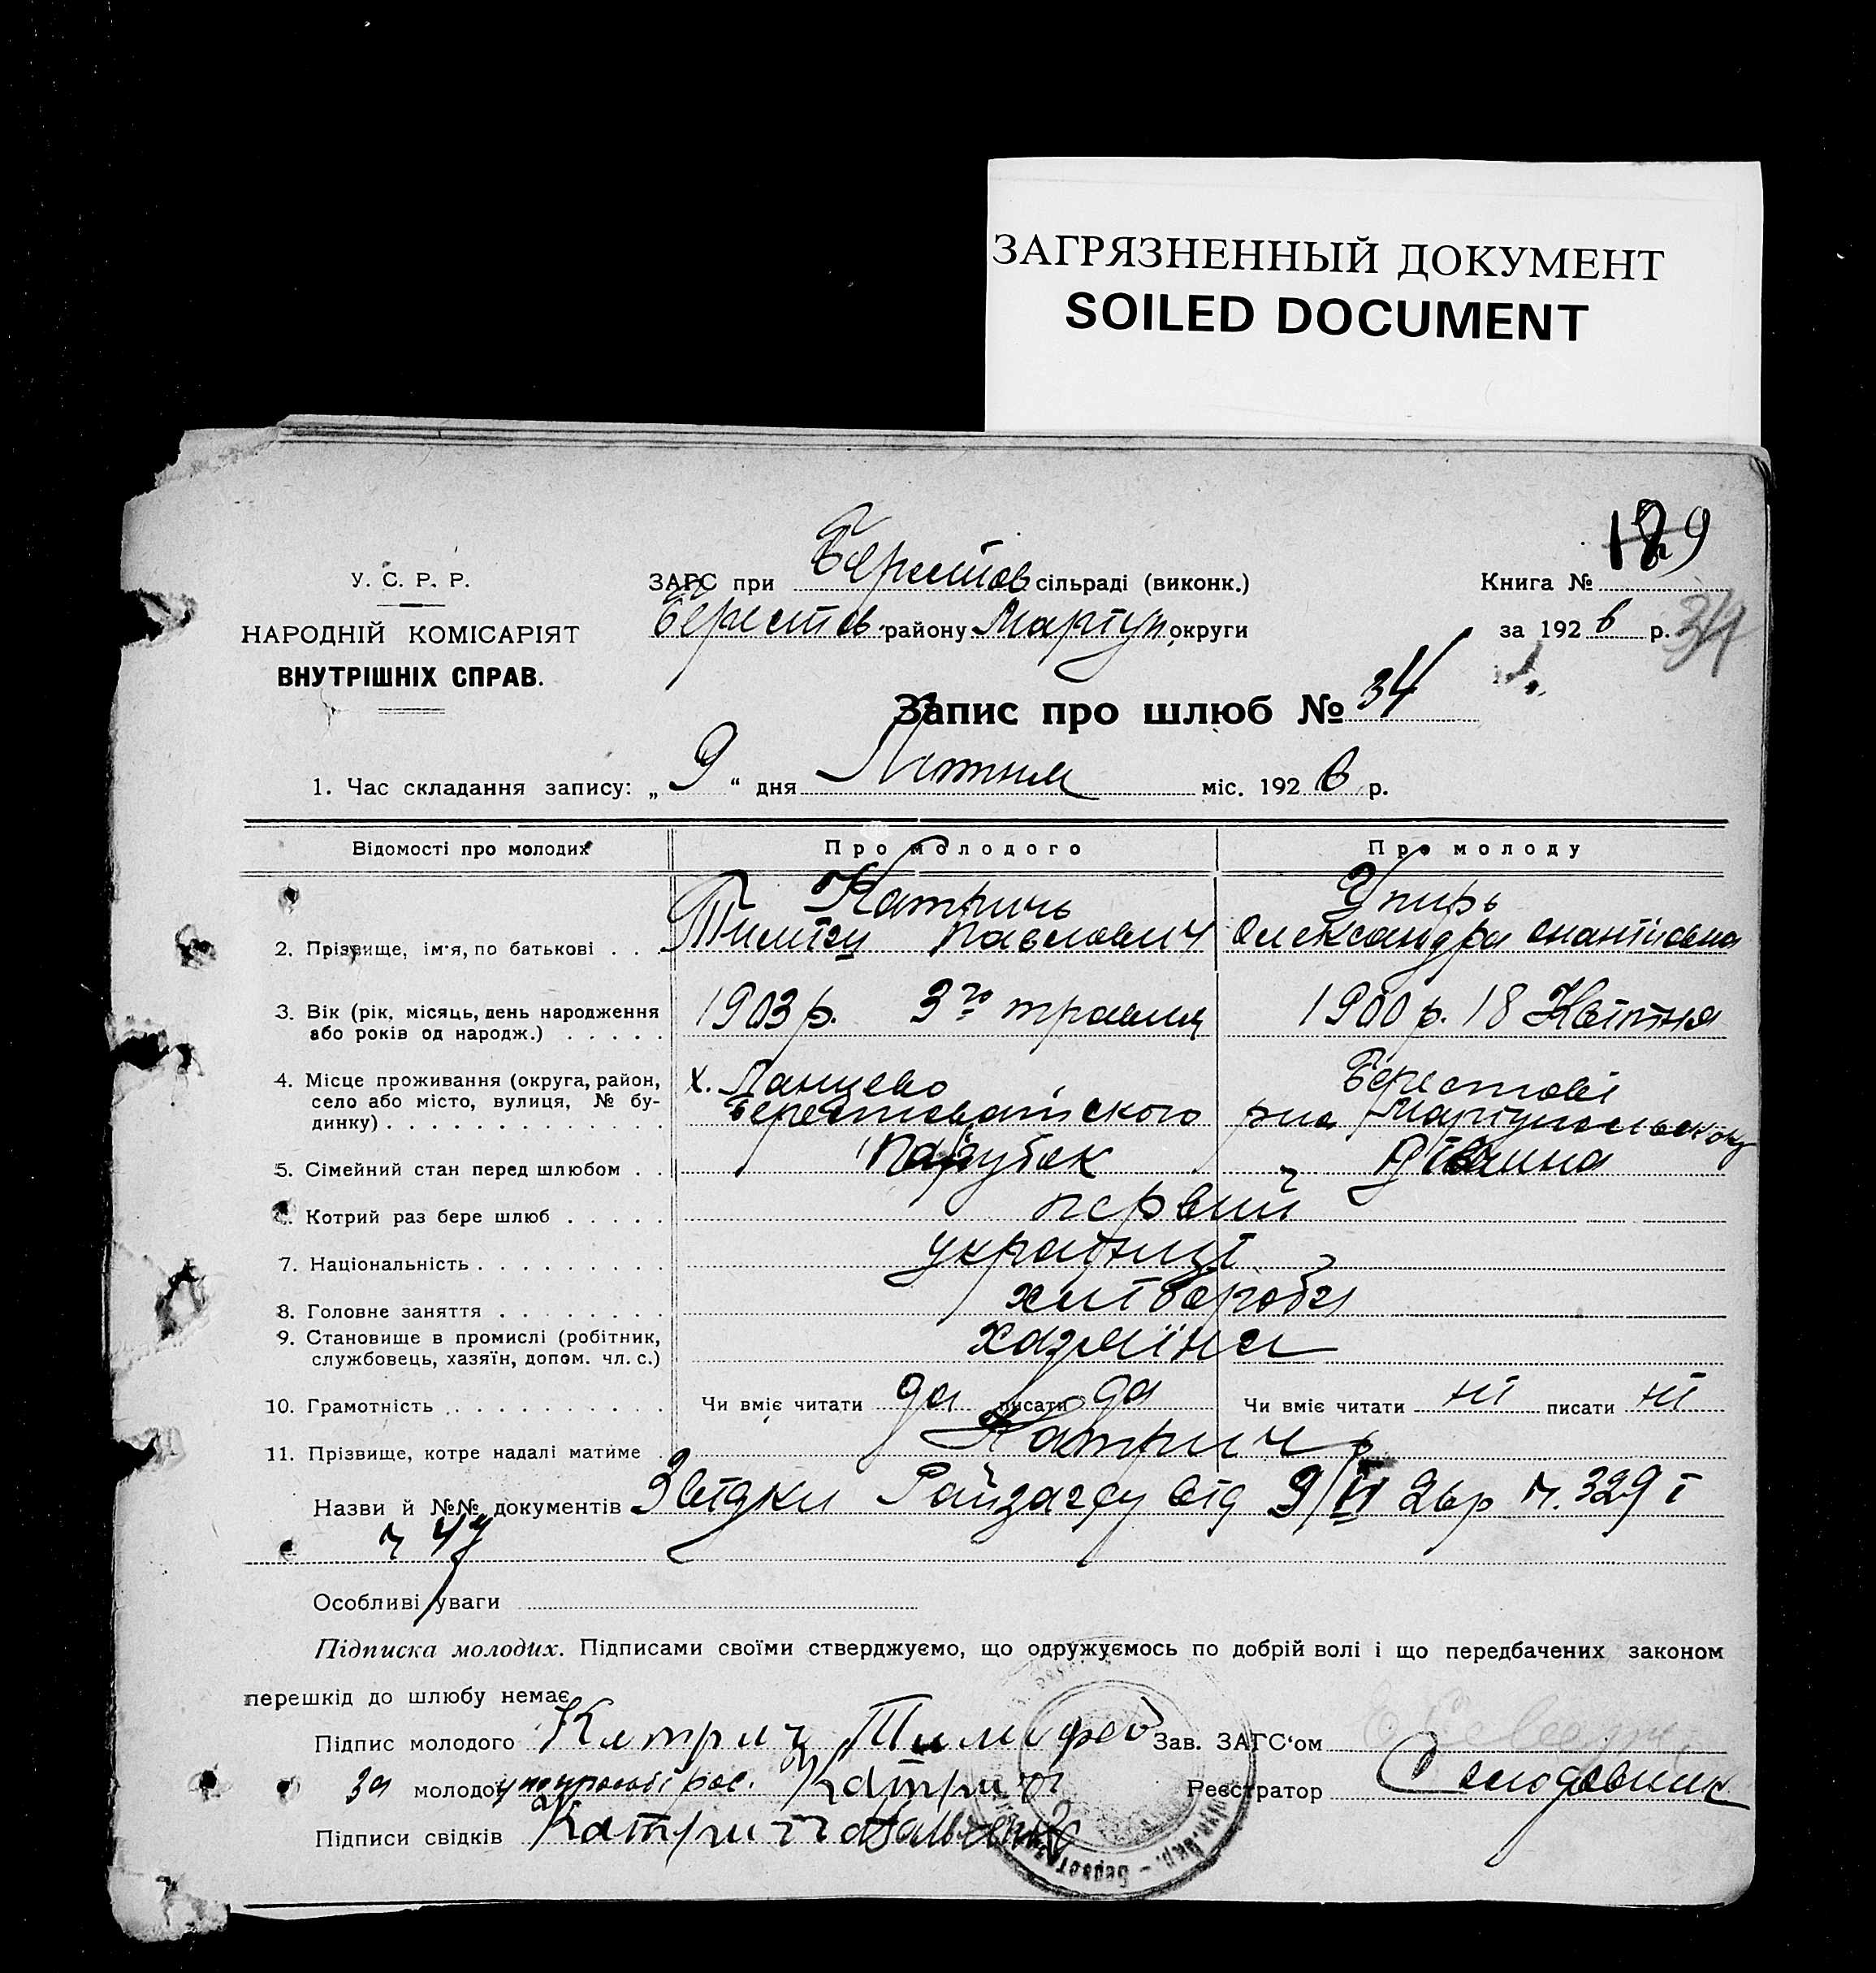 ЗАГРЯЗНЕННЫЙ ДОКУМЕНТ
SOILED DOCUMENT
У. С. Р. Р.
НАРОДНІЙ КОМІСАРІЯТ
ВНУТРІШНІХ СПРАВ.
ЗАГС при Берестов сільраді (виконк.)
Берестов. району Маріуп. округи
Книга №
за 1926 р. 34
Запис про шлюб № 34
1. Час складання запису: „9“ дня Лютня міс. 1926 р.
Відомості про молодих
Про молодого
Про молоду
2. Прізвище, ім'я, по батькові . . .
Катричь
Павлович
Упирь
Олександра
3. Вік (рік, місяць, день народження
або років од народж.) . . . . .
1903 р. 3го травня
1900 р. 18 Квітня
4. Місце проживання (округа, район,
село або місто, вулиця, № бу-
динку) . . . . . . . . . . . . .
х. Ланцево
Берестоватського
Берестові
5. Сімейний стан перед шлюбом . .
Парубок
Дівчина
6. Котрий раз бере шлюб . . . . .
первий
7. Національність . . . . . . . . .
українці
8. Головне заняття . . . . . . . .
хліборобы
9. Становище в промислі (робітник,
службовець, хазяїн, допом. чл. с.)
хазяїни
10. Грамотність . . . . . . . . . .
Чи вміє читати да писати да
Чи вміє читати ні писати ні
11. Прізвище, котре надалі матиме .
Катрич
Назви й №№ документів Звідки Райзагсу від 9/II 26 р ч. 329 і
ч 44
Особливі уваги
Підписка молодих. Підписами своїми стверджуємо, що одружуємось по добрій волі і що передбачених законом
перешкід до шлюбу немає
Підпис молодого Катрич Тимофей
Зав. ЗАГС'ом
За молоду Катрич
Реєстратор Солодовник
Підписи свідків Катрич